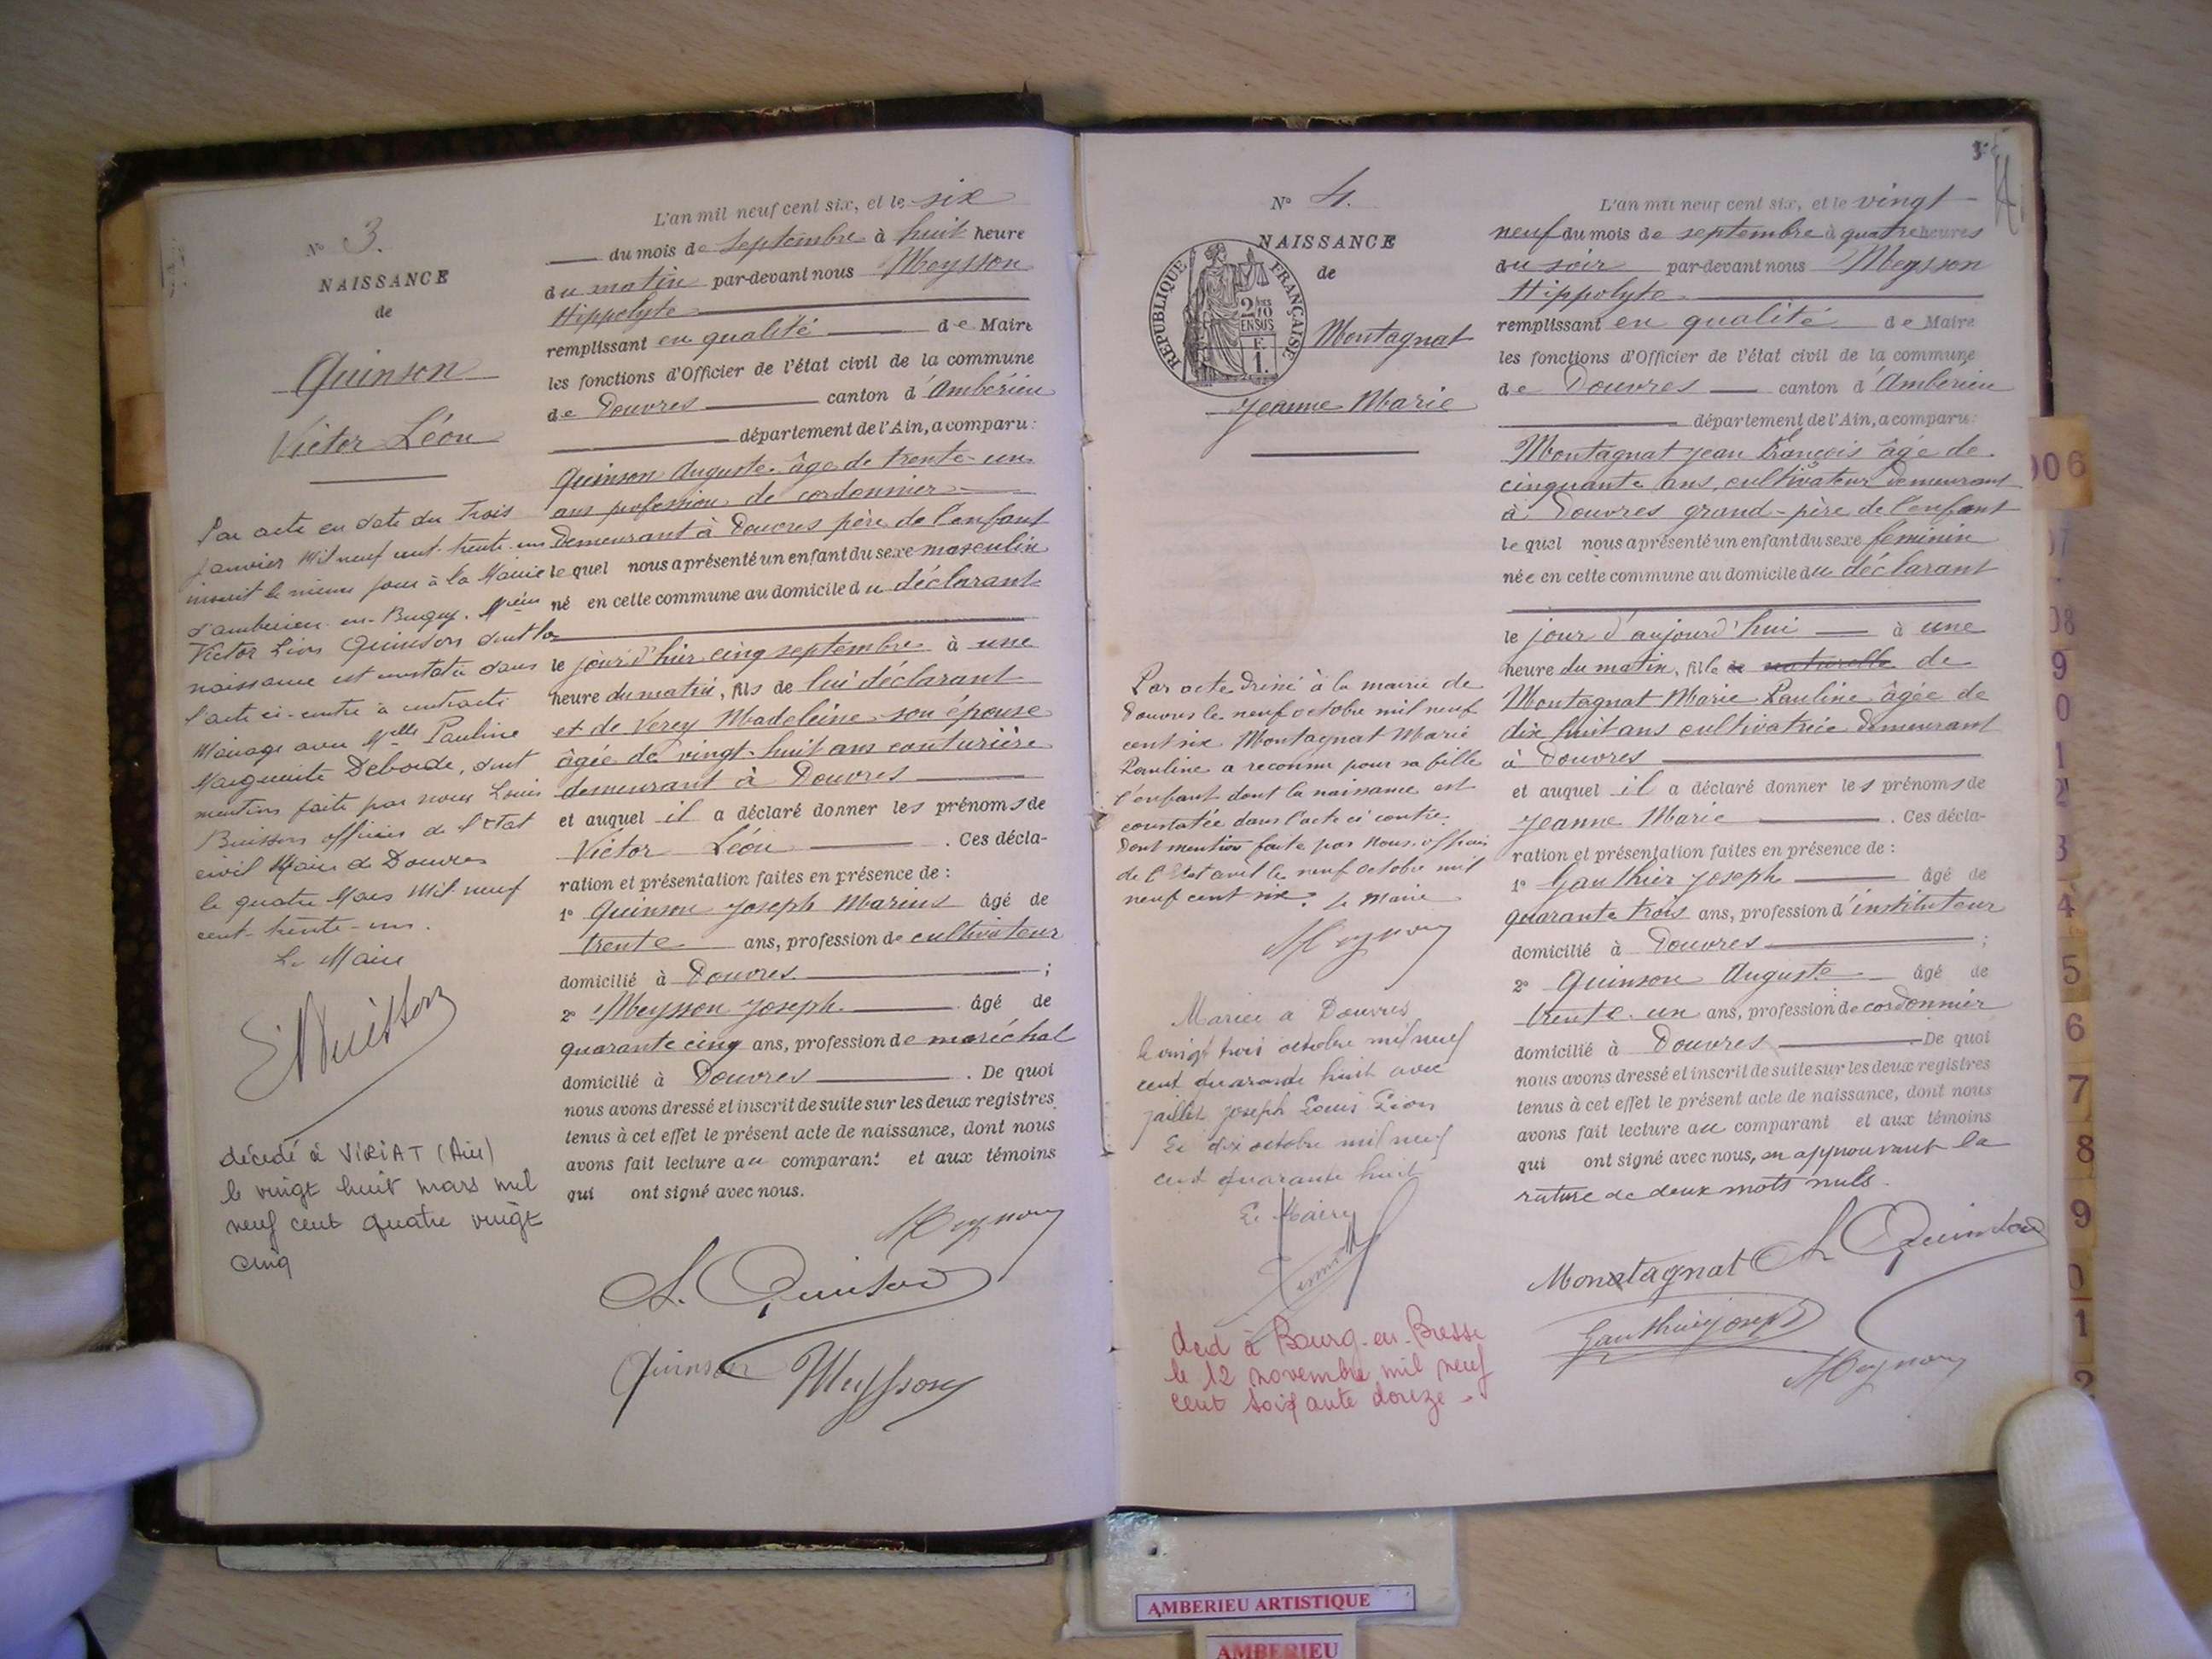 N° 3.
NAISSANCE
de
Quinson
Victor Léon
Par acte en date du trois
janvier mil neuf cent trente-un
inscrit le même jour à la Mairie
d'ambérieu-en-Bugey. Mr
Victor Léon Quinson dont la
naissance est constatée dans
l'acte ci-contre a contracté
Mariage avec Melle Pauline
Marguerite Deborde, dont
mention faite par nous Louis
Buisson officier de l'Etat
civil Maire de Douvres
le quatre Mars Mil neuf
cent-trente-un.
Le Maire
décédé à VIRIAT (Ain)
le vingt huit mars mil
neuf cent quatre vingt
cinq
L'an mil neuf cent six, et le six
du mois de septembre à huit heure
du matin par-devant nous Meysson
Hippolyte
remplissant en qualité de Maire
les fonctions d'Officier de l'état civil de la commune
de Douvres canton d'Ambérieu
département de l'Ain, a comparu:
Quinson Auguste âgé de trente-un
ans profession de cordonnier
demeurant à Douvres père de l'enfant
lequel nous a présenté un enfant du sexe masculin
né en cette commune au domicile du déclarant
le jour d'hier cinq septembre à une
heure du matin, fils de lui déclarant
et de Verey Madeleine son épouse
âgée de vingt-huit ans couturière
demeurant à Douvres
et auquel il a déclaré donner les prénoms de
Victor Léon . Ces décla-
ration et présentation faites en présence de :
1° Quinson Joseph Marius âgé de
trente ans, profession de cultivateur
domicilié à Douvres ;
2° Meysson Joseph âgé de
quarante cinq ans, profession de maréchal
domicilié à Douvres . De quoi
nous avons dressé et inscrit de suite sur les deux registres
tenus à cet effet le présent acte de naissance, dont nous
avons fait lecture au comparant et aux témoins
qui ont signé avec nous.
A. Quinson
Quinson Meysson
3
N° 4.
NAISSANCE
de
RÉPUBLIQUE FRANÇAISE
2/10
EN SUS
F.
1.
Montagnat
Jeanne Marie
Par acte dressé à la mairie de
Douvres le neuf octobre mil neuf
cent six Montagnat Marie
Pauline a reconnu pour sa fille
l'enfant dont la naissance est
constatée dans l'acte ci contre.
Dont mention faite par Nous officier
de l'Etat civil le neuf octobre mil
neuf cent six. Le Maire
Mariée à Douvres
le vingt trois octobre mil neuf
cent quarante huit avec
Jaillet Joseph Louis Léon
Le dix octobre mil neuf
cent quarante huit
Le Maire
décd à Bourg-en-Bresse
le 12 novembre mil neuf
cent soixante douze
L'an mil neuf cent six, et le vingt-
neuf du mois de septembre à quatre heures
du soir par-devant nous Meysson
Hippolyte
remplissant en qualité de Maire
les fonctions d'Officier de l'état civil de la commune
de Douvres canton d'Ambérieu
département de l'Ain, a comparu:
Montagnat Jean François âgé de
cinquante ans, cultivateur demeurant
à Douvres grand-père de l'enfant
lequel nous a présenté un enfant du sexe féminin
née en cette commune au domicile du déclarant
le jour d'aujourd'hui à une
heure du matin, fille de naturelle de
Montagnat Marie Pauline âgée de
dix huit ans cultivatrice demeurant
à Douvres
et auquel il a déclaré donner les prénoms de
Jeanne Marie . Ces décla-
ration et présentation faites en présence de :
1° Gauthier Joseph âgé de
quarante trois ans, profession d'instituteur
domicilié à Douvres ;
2° Quinson Auguste âgé de
trente-un ans, profession de cordonnier
domicilié à Douvres De quoi
nous avons dressé et inscrit de suite sur les deux registres
tenus à cet effet le présent acte de naissance, dont nous
avons fait lecture au comparant et aux témoins
qui ont signé avec nous, en approuvant la
rature de deux mots nuls.
Montagnat A. Quinson
Gauthier Joseph
906
07
08
9
0
1
2
3
4
5
6
7
8
9
0
1
2
AMBERIEU ARTISTIQUE
AMBERIEU